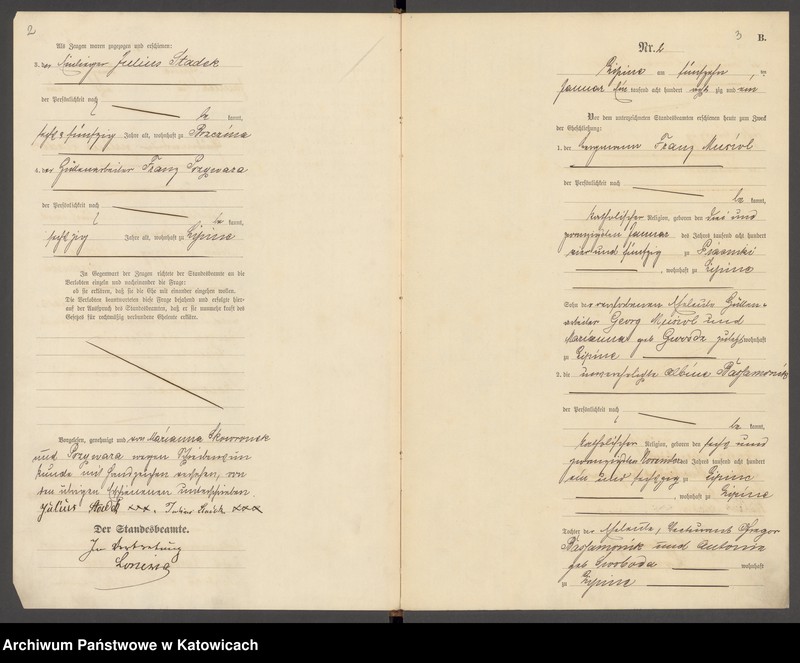 2
Als Zeugen waren zugezogen und erschienen:
3. der Einlieger Julius Stadek
der Persönlichkeit nach
be kannt,
sechs & fünfzig Jahre alt, wohnhaft zu Brzezina
4. der Hüttenarbeiter Franz Przywara
der Persönlichkeit nach
be kannt,
sechszig Jahre alt, wohnhaft zu Lipine
In Gegenwart der Zeugen richtete der Standesbeamte an die
Verlobten einzeln und nacheinander die Frage:
ob sie erklären, daß sie die Ehe mit einander eingehen wollen.
Die Verlobten beantworteten diese Frage bejahend und erfolgte hier-
auf der Ausspruch des Standesbeamten, daß er sie nunmehr kraft des
Gesetzes für rechtmäßig verbundene Eheleute erkläre.
Vorgelesen, genehmigt und von Marianna Skowronek
und Przywara wegen Schreibensun
kunde mit Handzeichen versehen, von
den übrigen Erschienenen unterschrieben.
Julius Stadek xxx. xxx
Der Standesbeamte.
In Vertretung
3
B.
Nr. 2
Lipine am fünfzehn ten
Januar tausend acht hundert acht zig und ein
Vor dem unterzeichneten Standesbeamten erschienen heute zum Zweck
der Eheschließung:
1. der Bergmann Franz Musiol
der Persönlichkeit nach
be kannt,
katholischer Religion, geboren den drei und
zwanzigsten Januar des Jahres tausend acht hundert
vier und fünfzig zu
, wohnhaft zu Lipine
Sohn des verstorbenen Häusler Hütten-
arbeiter Georg Musiol und
Marianna geb. zuletzt wohnhaft
zu Lipine
2. die unverehelichte Albine
der Persönlichkeit nach
be kannt,
katholischer Religion, geboren den sechs und
zwanzigsten November des Jahres tausend acht hundert
ein und sechszig zu Lipine
, wohnhaft zu Lipine
Tochter der Häusler, Gregor
und Antonie
geb. Swoboda wohnhaft
zu Lipine
Archiwum Państwowe w Katowicach